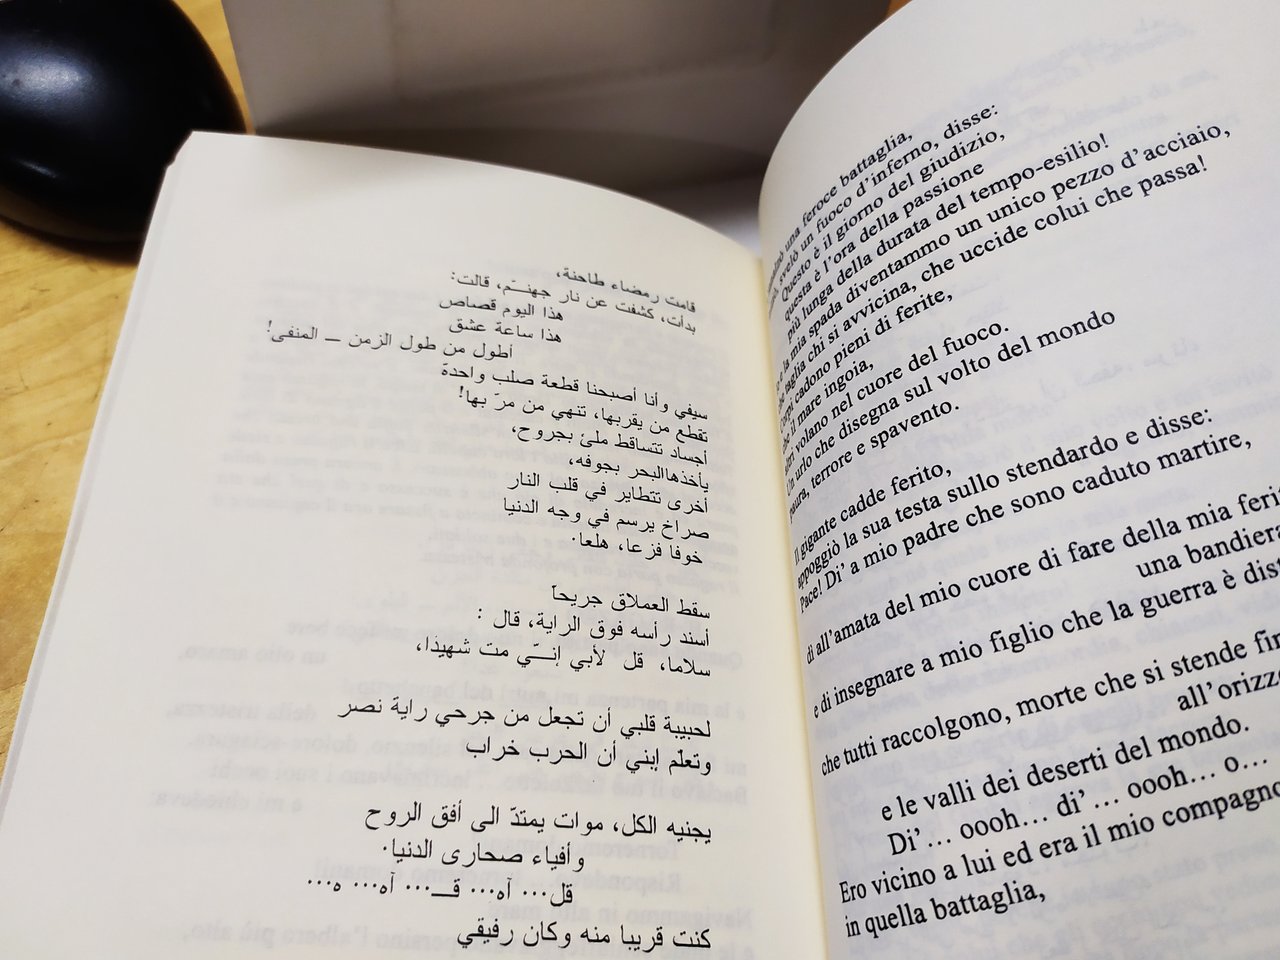 قامت رمضاء طاحنة،
بدأت، كشفت عن نار جهنّم، قالت:
هذا اليوم قصاص
هذا ساعة عشق
أطول من طول الزمن ــ المنفى!
سيفي وأنا أصبحنا قطعة صلب واحدة
تقطع من يقربها، تنهي من مرّ بها!
أجساد تتساقط ملئ بجروح،
يأخذهاالبحر بجوفه،
أخرى تتطاير في قلب النار
صراخ يرسم في وجه الدنيا
خوفا فزعا، هلعا.
سقط العملاق جريحاً
أسند رأسه فوق الراية، قال :
سلاما، قل لأبي إنّي مت شهيدا،
لحبيبة قلبي أن تجعل من جرحي راية نصر
وتعلّم إبني أن الحرب خراب
يجنيه الكل، موات يمتدّ الى أفق الروح
وأفياء صحارى الدنيا.
قل... آه... قـ... آه... ه...
كنت قريبا منه وكان رفيقي
una feroce battaglia,
svelò un fuoco d'inferno, disse:
Questo è il giorno del giudizio,
questa è l'ora della passione
più lunga della durata del tempo-esilio!
la mia spada diventammo un unico pezzo d'acciaio,
taglia chi si avvicina, che uccide colui che passa!
cadono pieni di ferite,
il mare ingoia,
volano nel cuore del fuoco.
Un urlo che disegna sul volto del mondo
paura, terrore e spavento.
Il gigante cadde ferito,
appoggiò la sua testa sullo stendardo e disse:
Pace! Di' a mio padre che sono caduto martire,
di all'amata del mio cuore di fare della mia ferit
una bandiera
e di insegnare a mio figlio che la guerra è dist
che tutti raccolgono, morte che si stende fin
all'orizzo
e le valli dei deserti del mondo.
Di'... oooh... di'... oooh... o...
Ero vicino a lui ed era il mio compagno
in quella battaglia,